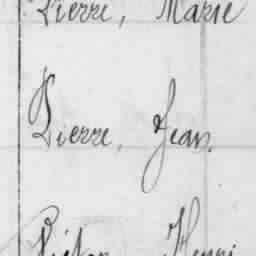 Pierre, Marie
Pierre, Jean.
Victor, Henri